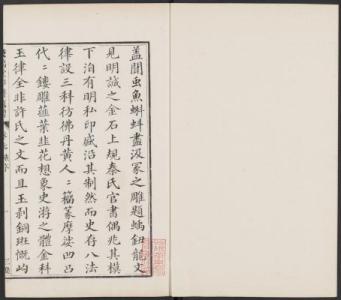 蓋聞虫魚蝌蚪盡汲冢之雕題螭鈕龍文
見明誠之金石上規秦氏官書偶兆其模
下洎有明私印盛沿其制然而史存八法
律設三科彷彿丹黄人〻籀篆摩挲凹吕
代〻鏤雕薤葉韭花想象史游之體金科
玉律全非許氏之文而且玉剥銅斑慨岣